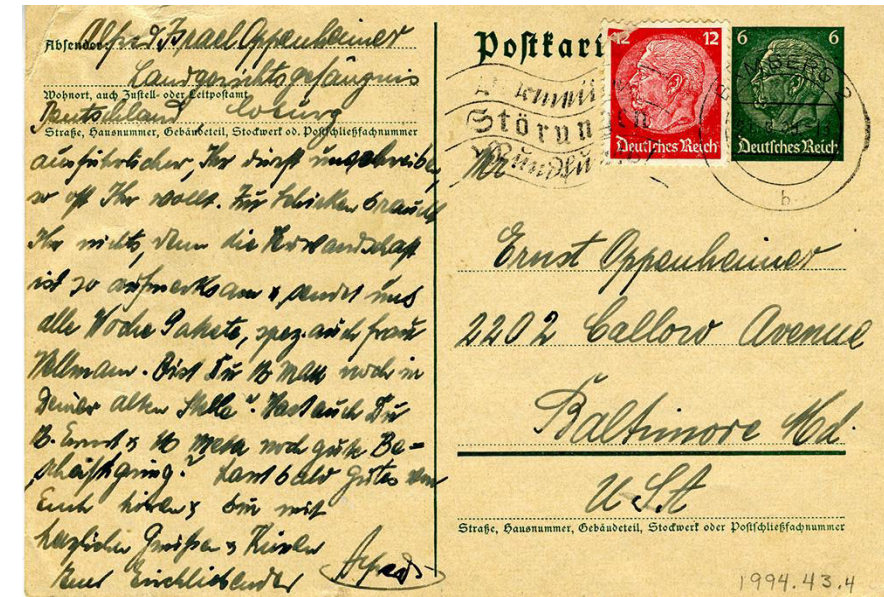 Absender: Alfred Israel Oppenheimer
Landgerichtsgefängnis
Wohnort, auch Zustell- oder Leitpostamt
Deutschland, Coburg
Straße, Hausnummer, Gebäudeteil, Stockwerk od. Postschließfachnummer
ausführlicher, Ihr dürft uns schreiben,
so oft Ihr wollt. Zu schicken braucht
Ihr nichts, denn die Verwandschaft
ist so aufmerksam & sendet uns
alle Woche Pakete, spez. auch Frau
Wellmann. Bist Du noch in
Deiner alten Stelle? Hast auch Du
Ernst & Meta noch gute Be-
schäftigung? Lasst bald gutes von
Euch hören & bin mit
herzlichen Grüßen & Küssen
Euer Euch liebender Alfred
Postkarte
12 12
Deutsches Reich
6 6
Deutsches Reich
Störungen
b
Mr
Ernst Oppenheimer
2202 Callow Avenue
Baltimore Md.
U.S.A
Straße, Hausnummer, Gebäudeteil, Stockwerk oder Postschließfachnummer
1994.43.4